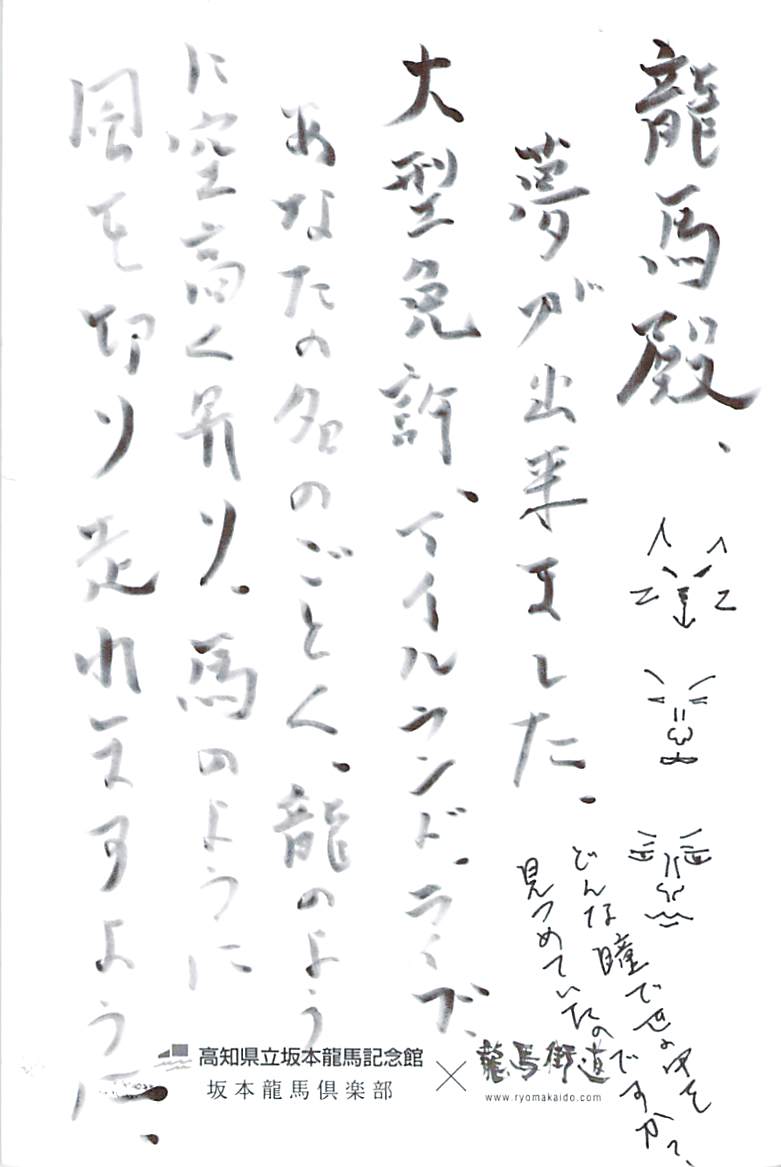 龍馬殿、
夢が出来ました、
大型免許、アイルランド、ライブ、
あなたの名のごとく、龍のよう
に空高く昇り、馬のように
風を切り走れますように、
どんな瞳でせの中を
見つめていたのですか?、
高知県立坂本龍馬記念館
坂本龍馬倶楽部
×
龍馬街道
www.ryomakaido.com